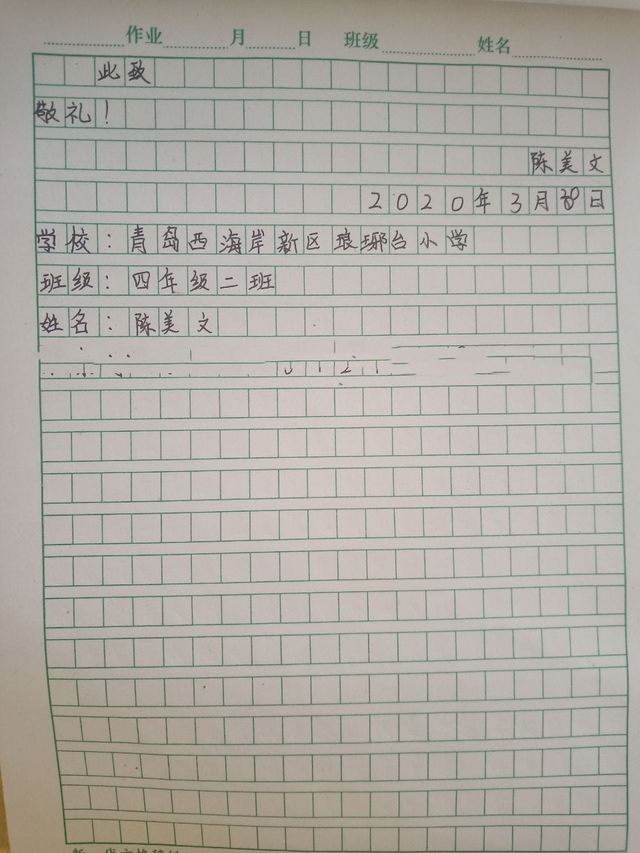 作业 月 日 班级 姓名
此致
敬礼！
陈美文
2020年3月日
学校：青岛西海岸新区琅琊台小学
班级：四年级二班
姓名：陈美文